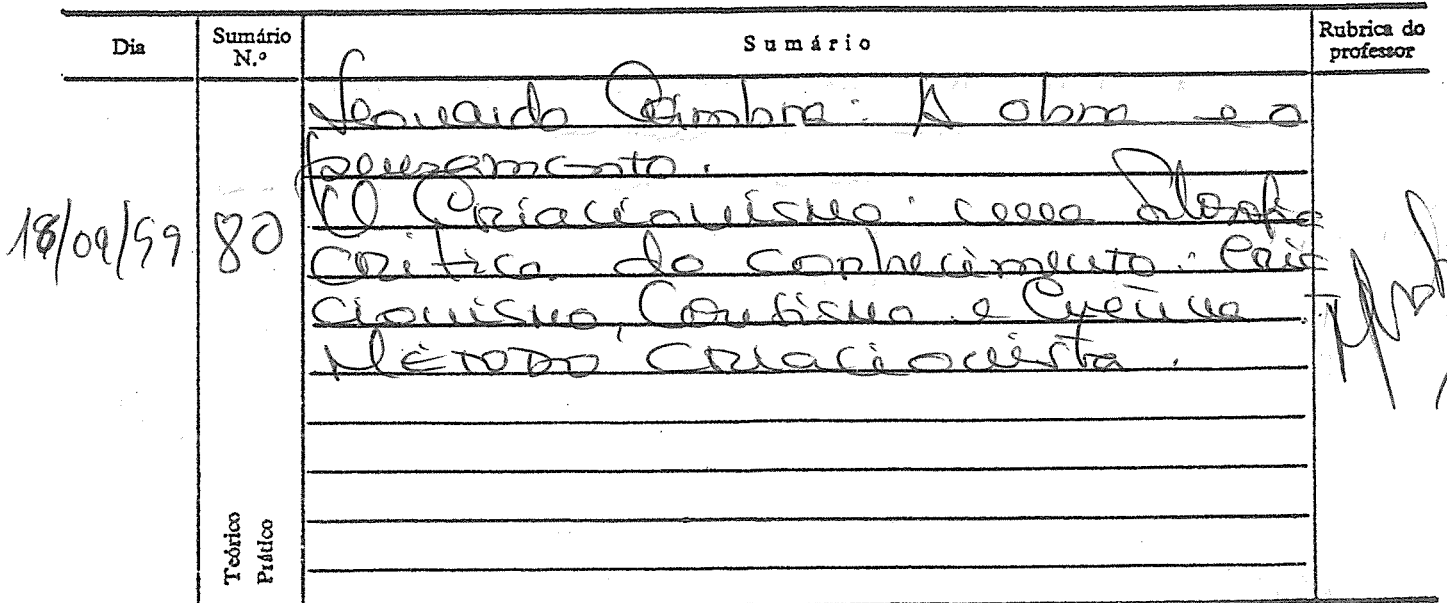 Dia
Sumário N.º
Sumário
Rubrica do professor
Leonardo Coimbra: A obra e o
pensamento.
18/09/99
80
O Criacionismo como filosofia
crítica do conhecimento. Cria
cionismo, e
Método Criacionista.
Teórico
Prático